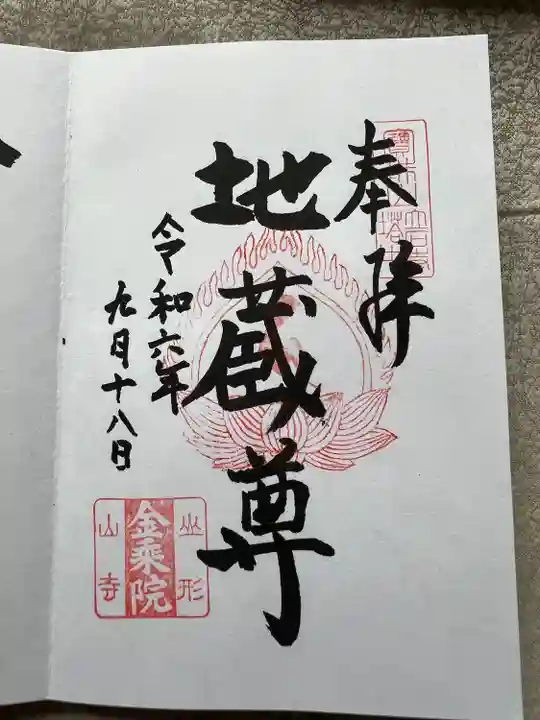 奉拝
地蔵尊
令和六年
九月十八日
山形
金乘院
山寺